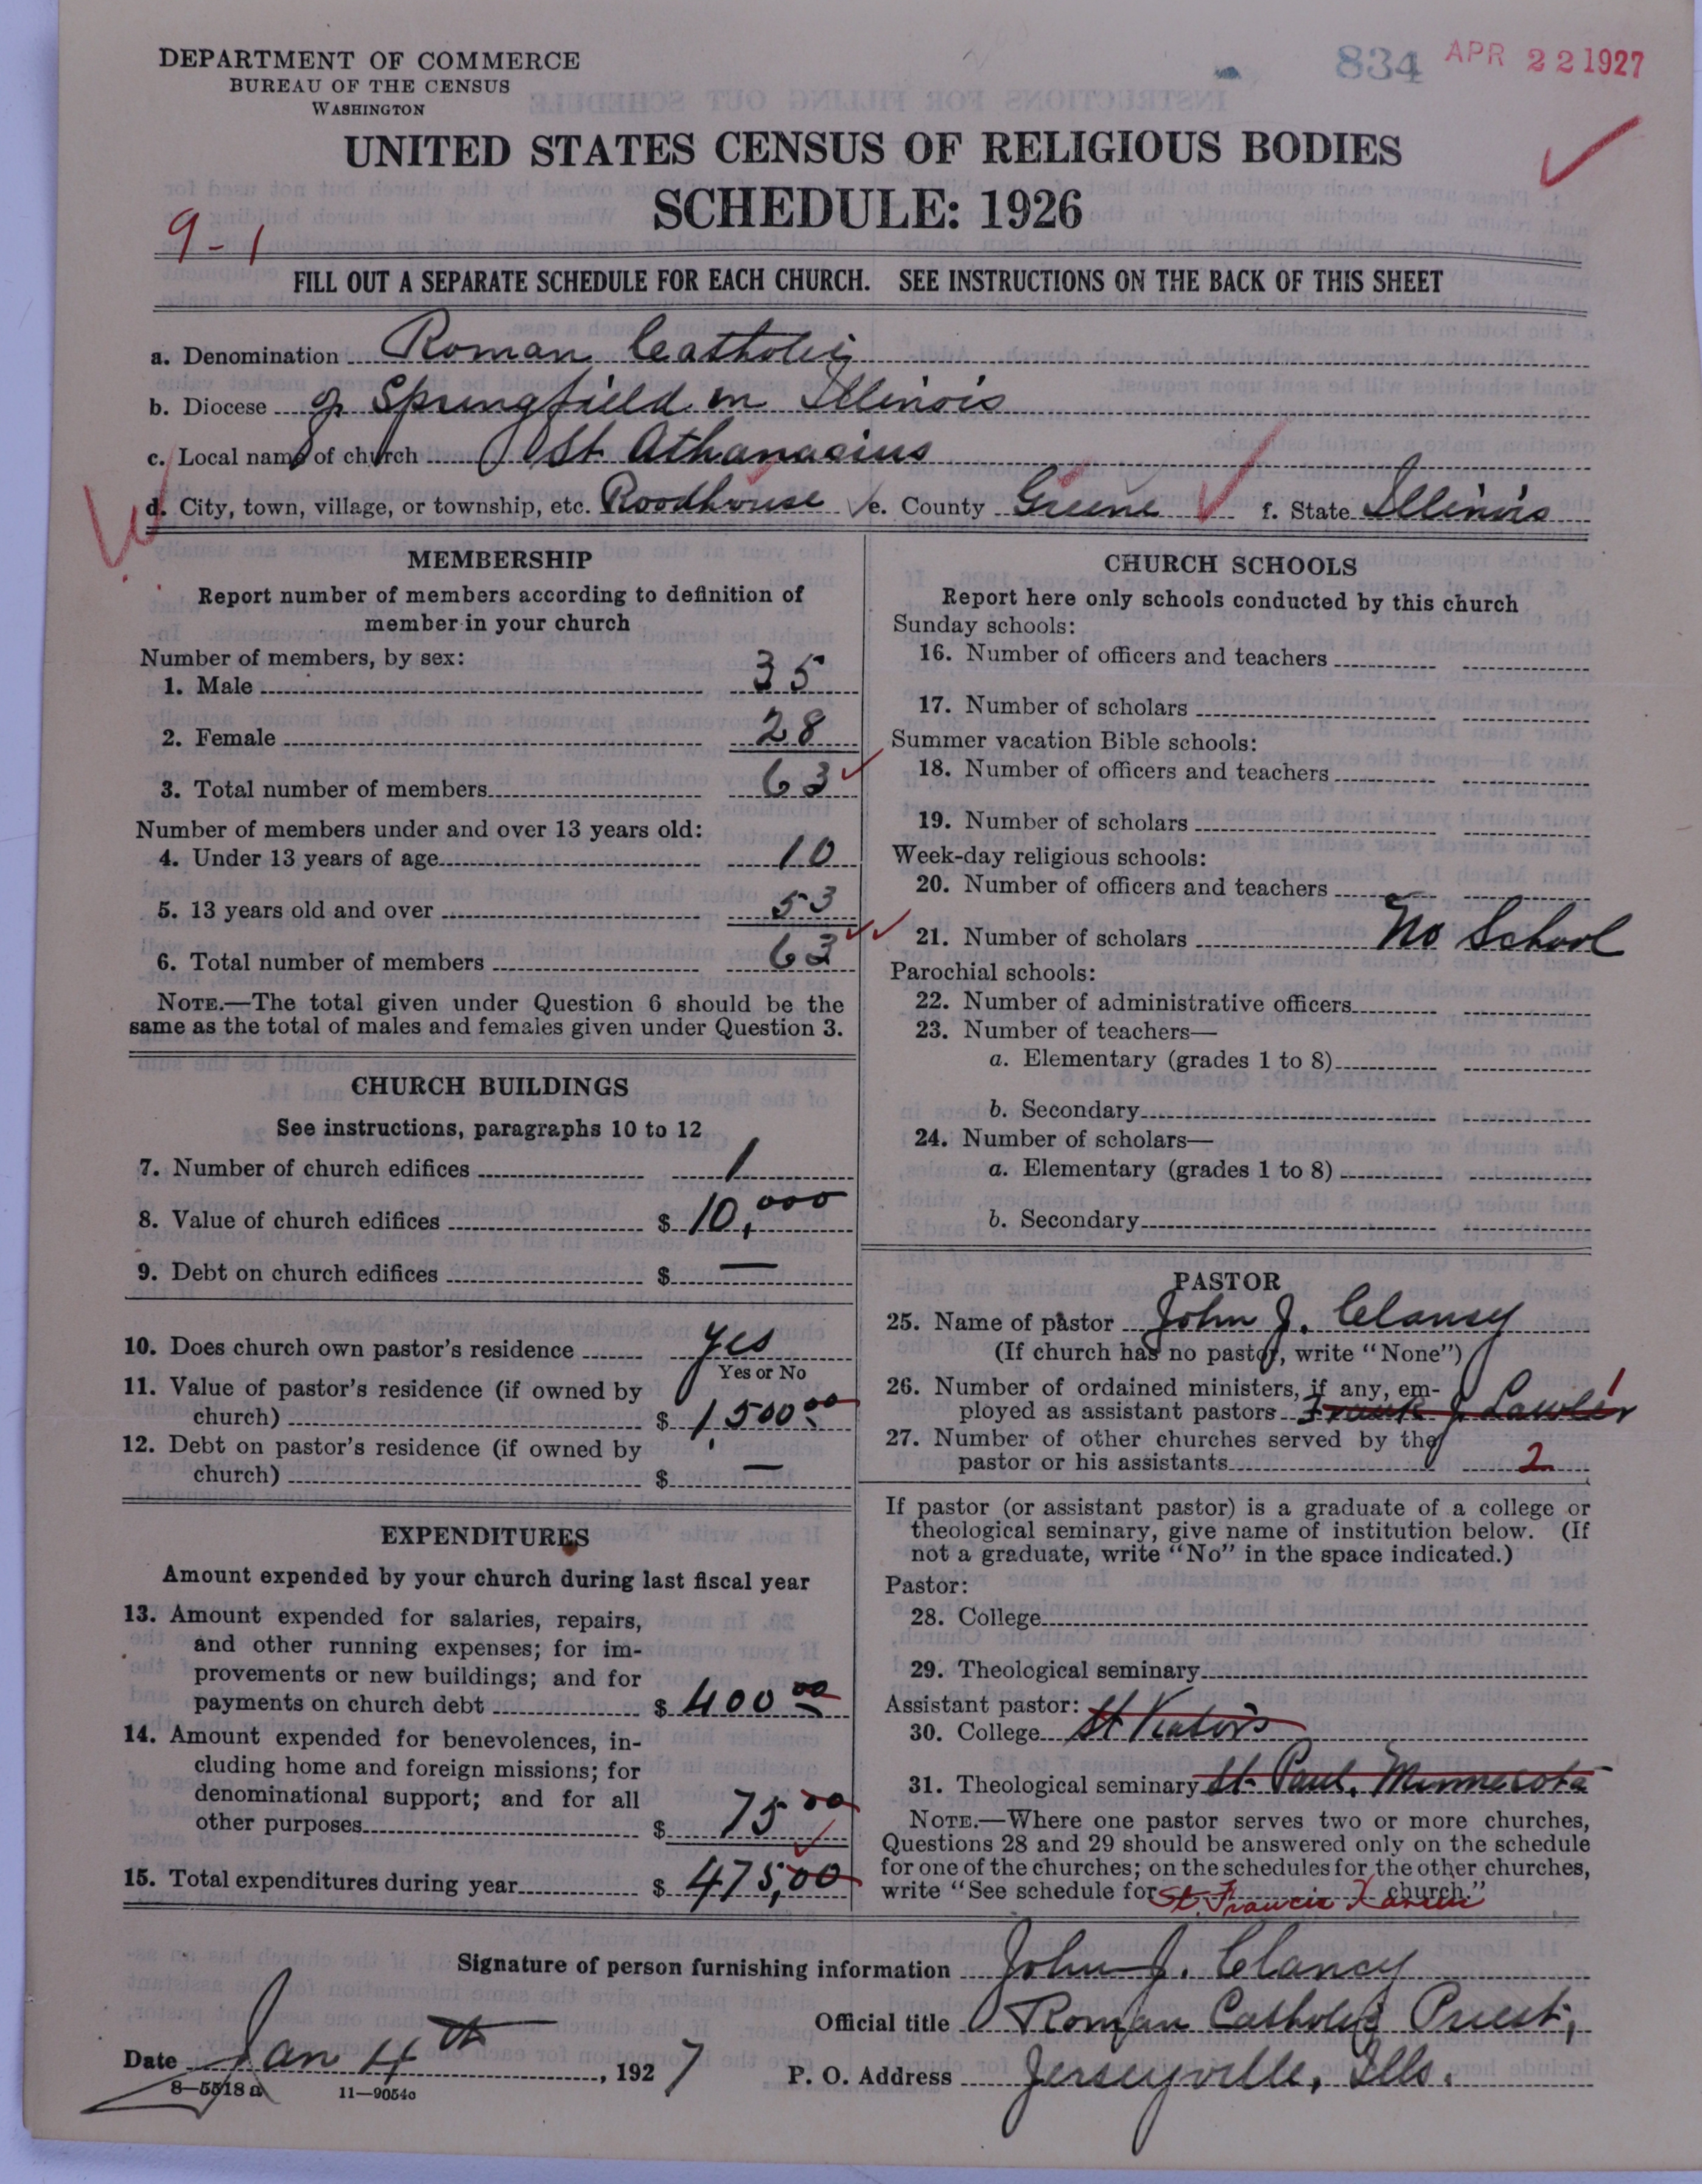 DEPARTMENT OF COMMERCE
BUREAU OF THE CENSUS
WASHINGTON
834 APR 22 1927
UNITED STATES CENSUS OF RELIGIOUS BODIES
SCHEDULE: 1926
9-1
FILL OUT A SEPARATE SCHEDULE FOR EACH CHURCH. SEE INSTRUCTIONS ON THE BACK OF THIS SHEET
a. Denomination Roman Catholic
b. Diocese of Springfield in Illinois
c. Local name of church St Athanasius
d. City, town, village, or township, etc. Roodhouse e. County Greene f. State Illinois
MEMBERSHIP
Report number of members according to definition of
member in your church
Number of members, by sex:
1. Male 35
2. Female 28
3. Total number of members 63
Number of members under and over 13 years old:
4. Under 13 years of age 10
5. 13 years old and over 53
6. Total number of members 63
NOTE.—The total given under Question 6 should be the
same as the total of males and females given under Question 3.
CHURCH BUILDINGS
See instructions, paragraphs 10 to 12
7. Number of church edifices 1
8. Value of church edifices $ 10,000
9. Debt on church edifices $ —
10. Does church own pastor's residence yes
Yes or No
11. Value of pastor's residence (if owned by
church) $ 1,500.00
12. Debt on pastor's residence (if owned by
church) $ —
EXPENDITURES
Amount expended by your church during last fiscal year
13. Amount expended for salaries, repairs,
and other running expenses; for im-
provements or new buildings; and for
payments on church debt $ 400 00
14. Amount expended for benevolences, in-
cluding home and foreign missions; for
denominational support; and for all
other purposes $ 75 00
15. Total expenditures during year $ 475,00
CHURCH SCHOOLS
Report here only schools conducted by this church
Sunday schools:
16. Number of officers and teachers
17. Number of scholars
Summer vacation Bible schools:
18. Number of officers and teachers
19. Number of scholars
Week-day religious schools:
20. Number of officers and teachers
21. Number of scholars No School
Parochial schools:
22. Number of administrative officers
23. Number of teachers—
a. Elementary (grades 1 to 8)
b. Secondary
24. Number of scholars—
a. Elementary (grades 1 to 8)
b. Secondary
PASTOR
25. Name of pastor John J. Clancy
(If church has no pastor, write "None")
26. Number of ordained ministers, if any, em- 1
ployed as assistant pastors Frank J Lawler
27. Number of other churches served by the
pastor or his assistants 2
If pastor (or assistant pastor) is a graduate of a college or
theological seminary, give name of institution below. (If
not a graduate, write "No" in the space indicated.)
Pastor:
28. College
29. Theological seminary
Assistant pastor:
30. College St Viators
31. Theological seminary St. Paul, Minnesota
NOTE.—Where one pastor serves two or more churches,
Questions 28 and 29 should be answered only on the schedule
for one of the churches; on the schedules for the other churches,
write "See schedule for St. Francis Xavier church."
Signature of person furnishing information John J. Clancy
Official title Roman Catholic Priest,
Date Jan 4th, 1927
P. O. Address Jerseyville, Ills.
8—5518 a 11—9054c